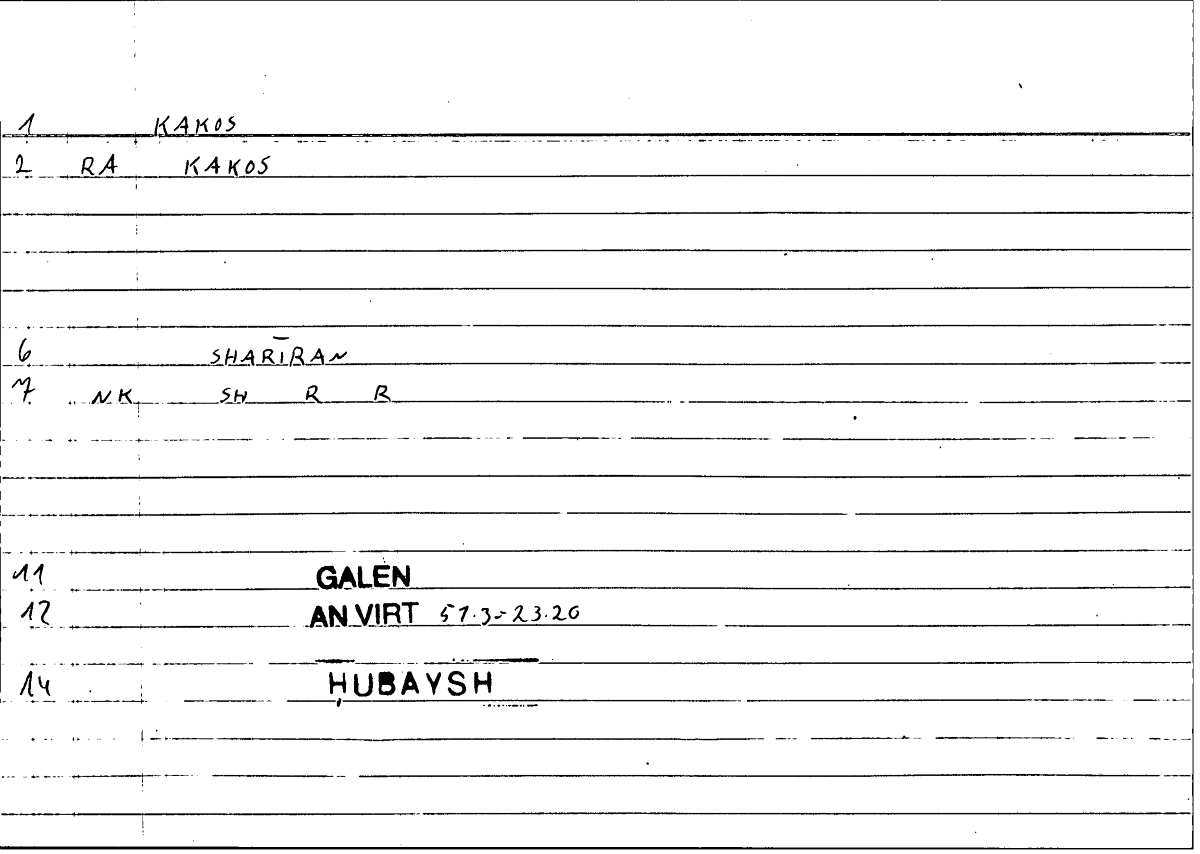 1 KAKOS
2 RA KAKOS
6 SHARĪRAN
7 NK SH R R
11 GALEN
12 AN VIRT 51.3=23.20
14 ḤUBAYSH